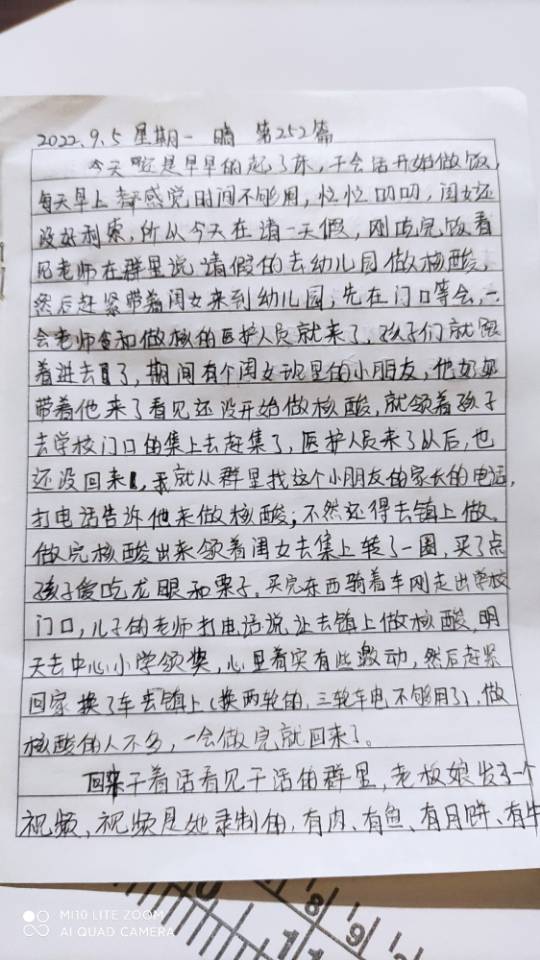 2022.9.5 星期一 晴 第252篇
今天还是早早的起了床,干会活开始做饭,
每天早上都感觉时间不够用,忙忙叨叨,闺女还
没好利索,所以今天在请一天假,刚吃完饭看
见老师在群里说请假的去幼儿园做核酸,
然后赶紧带着闺女来到幼儿园,先在门口等会,一
会老师和做核的医护人员就来了,孩子们就跟
着进去了,期间有个闺女班里的小朋友,他奶奶
带着他来了看见还没开始做核酸,就领着孩子
去学校门口的集上去赶集了,医护人员来了以后,也
还没回来,我就从群里找这个小朋友的家长的电话,
打电话告诉他来做核酸,不然还得去镇上做。
做完核酸出来领着闺女去集上转了一圈,买了点
孩子爱吃龙眼和栗子。买完东西骑着车刚走出学校
门口,儿子的老师打电话说让去镇上做核酸,明
天去中心小学领奖,心里着实有些激动,然后赶紧
回家换了车去镇上(换两轮的,三轮车电不够用了),做
核酸的人不多,一会做完就回来了。
回来干着活看见干活的群里,老板娘发了一个
视频,视频是她录制的,有肉、有鱼、有月饼、有牛
MI10 LITE ZOOM
AI QUAD CAMERA
8
9
11